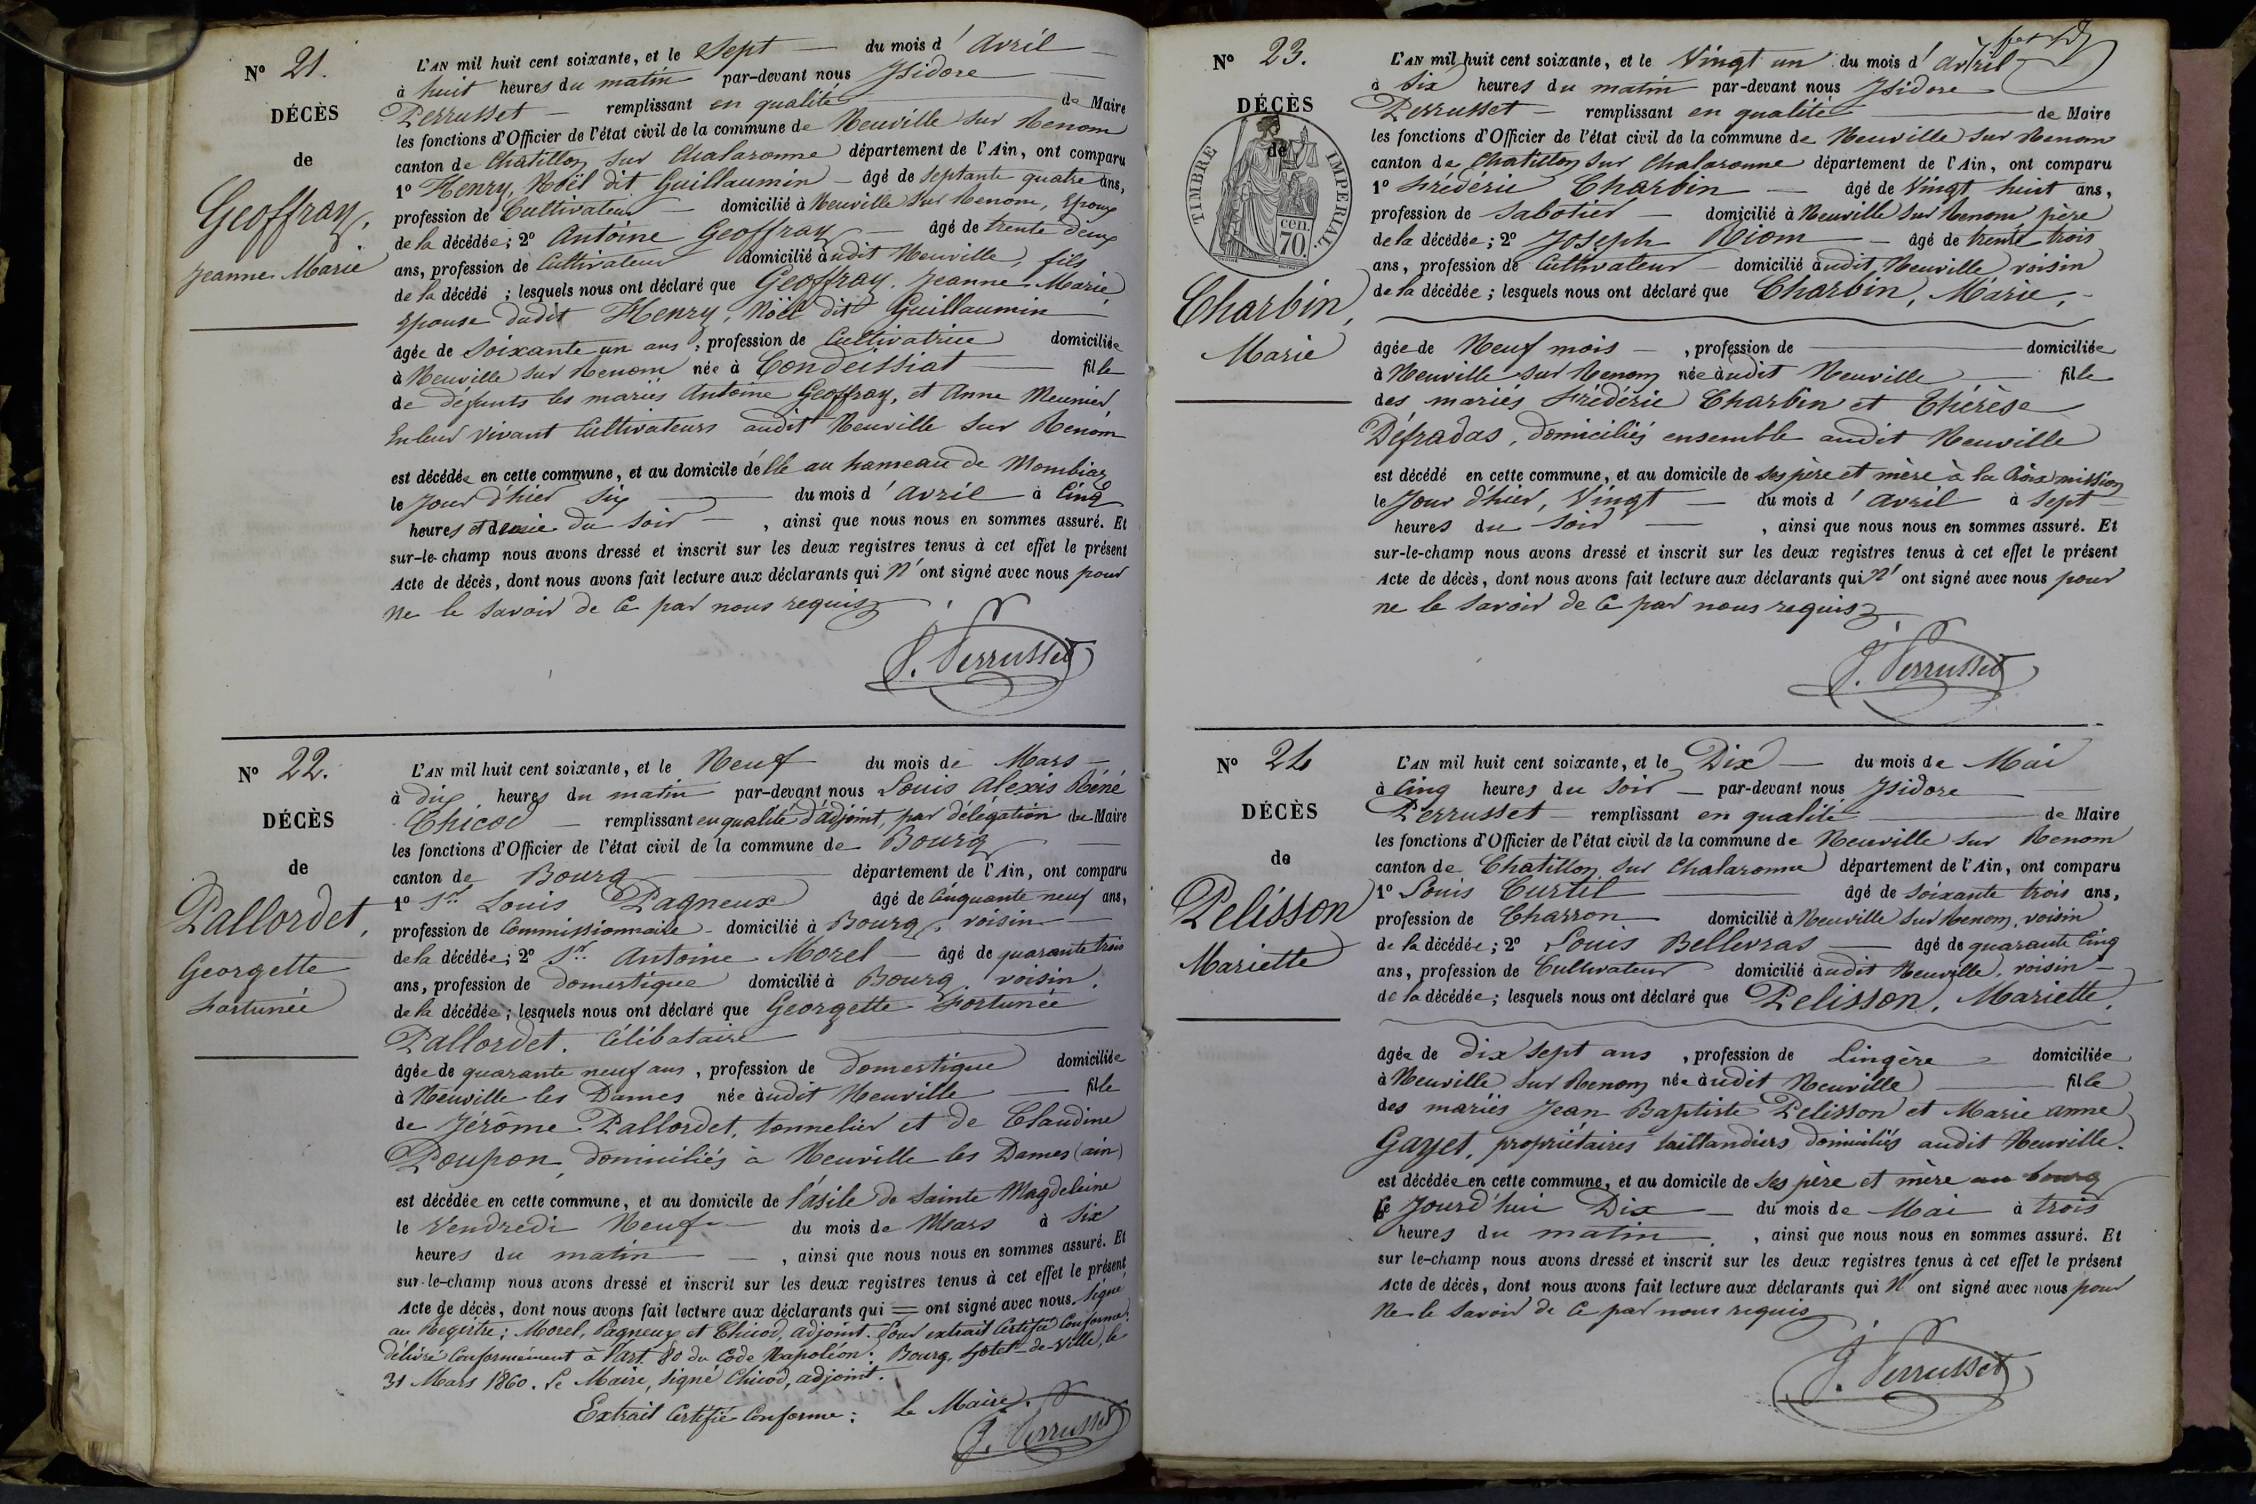 N° 21.
DÉCÈS
de
Geoffray,
Jeanne Marie
L'AN mil huit cent soixante, et le Sept — du mois d'Avril —
à huit heures du matin par-devant nous Isidore —
Perrusset — remplissant en qualité — de Maire
les fonctions d'Officier de l'état civil de la commune de Neuville sur Renom
canton de Chatillon sur Chalaronne département de l'Ain, ont comparu
1° Henry, Noël dit Guillaumin — âgé de septante quatre ans,
profession de Cultivateur — domicilié à Neuville sur Renom, Epoux
de la décédée; 2° Antoine Geoffray — âgé de trente deux
ans, profession de Cultivateur domicilié audit Neuville, fils
de la décédé ; lesquels nous ont déclaré que Geoffray, Jeanne Marie,
Epouse dudit Henry, Noël dit Guillaumin
âgée de soixante un ans, profession de Cultivatrice domiciliée
à Neuville sur Renom née à Condeissiat — fille
de défunts les mariés Antoine Geoffray, et Anne Meunier,
En leur vivant Cultivateurs audit Neuville sur Renom
est décédée en cette commune, et au domicile d'elle au hameau de Mombiaz
le Jour d'hier six — du mois d'avril à Cinq
heures et demie du soir — , ainsi que nous nous en sommes assuré. Et
sur-le-champ nous avons dressé et inscrit sur les deux registres tenus à cet effet le présent
Acte de décès, dont nous avons fait lecture aux déclarants qui n'ont signé avec nous pour
ne le savoir de ce par nous requis
J. Perrusset
N° 22.
DÉCÈS
de
Pallordet,
Georgette
Fortunée
L'AN mil huit cent soixante, et le Neuf du mois de Mars —
à dix heures du matin par-devant nous Louis Alexis Réné
Chicod — remplissant en qualité d'adjoint, par délégation du Maire
les fonctions d'Officier de l'état civil de la commune de Bourg —
canton de Bourg — département de l'Ain, ont comparu
1° Sr. Louis Pagneux âgé de Cinquante neuf ans,
profession de Commissionnaire — domicilié à Bourg, voisin —
de la décédée; 2° Sr. Antoine Morel — âgé de quarante trois
ans, profession de domestique domicilié à Bourg, voisin,
de la décédée; lesquels nous ont déclaré que Georgette Fortunée
Pallordet. Célibataire —
âgée de quarante neuf ans, profession de domestique domiciliée
à Neuville les Dames née audit Neuville — fille
de Jérôme Pallordet, tonnelier et de Claudine
Poupon, domiciliés à Neuville les Dames (ain)
est décédée en cette commune, et au domicile de l'asile de Sainte Magdeleine
le Vendredi Neuf — du mois de Mars à Six
heures du matin — , ainsi que nous nous en sommes assuré. Et
sur-le-champ nous avons dressé et inscrit sur les deux registres tenus à cet effet le présent
Acte de décès, dont nous avons fait lecture aux déclarants qui = ont signé avec nous. Signé
au Registre: Morel, Pagneux et Chicod, adjoint. Pour extrait Certifié Conforme,
délivré Conformément à l'art. 80 du Code Napoléon: Bourg, hôtel-de-ville, le
31 Mars 1860. Le Maire, signé Chicod, adjoint.
Extrait Certifié Conforme: Le Maire,
J. Perrusset
N° 23.
DÉCÈS
de
TIMBRE IMPERIAL
cen. 70.
Charbin,
Marie
L'AN mil huit cent soixante, et le Vingt un du mois d'avril
à Six heures du matin par-devant nous Isidore
Perrusset — remplissant en qualité — de Maire
les fonctions d'Officier de l'état civil de la commune de Neuville sur Renom
canton de Chatillon sur Chalaronne département de l'Ain, ont comparu
1° Frédéric Charbin — âgé de Vingt huit ans,
profession de Sabotier — domicilié à Neuville sur Renom père
de la décédée; 2° Joseph Riom — âgé de trente trois
ans, profession de Cultivateur — domicilié audit Neuville voisin
de la décédée; lesquels nous ont déclaré que Charbin, Marie, —
âgée de Neuf mois — , profession de — domiciliée
à Neuville sur Renom née audit Neuville — fille
des mariés Frédéric Charbin et Thérèse
Défradas, domiciliés ensemble audit Neuville
est décédé en cette commune, et au domicile de ses père et mère à la Croix mission
le Jour d'hier, Vingt — du mois d'avril à Sept —
heures du soir — , ainsi que nous nous en sommes assuré. Et
sur-le-champ nous avons dressé et inscrit sur les deux registres tenus à cet effet le présent
Acte de décès, dont nous avons fait lecture aux déclarants qui n'ont signé avec nous pour
ne le savoir de ce par nous requis
J. Perrusset
N° 24
DÉCÈS
de
Pelisson
Mariette
L'AN mil huit cent soixante, et le Dix — du mois de Mai
à Cinq heures du soir — par-devant nous Isidore —
Perrusset — remplissant en qualité — de Maire
les fonctions d'Officier de l'état civil de la commune de Neuville sur Renom
canton de Chatillon sur Chalaronne département de l'Ain, ont comparu
1° Louis Curtil — âgé de soixante trois ans,
profession de Charron — domicilié à Neuville sur Renom, voisin
de la décédée; 2° Louis Bellevras — âgé de quarante Cinq
ans, profession de Cultivateur domicilié audit Neuville, voisin —
de la décédée; lesquels nous ont déclaré que Pelisson, Mariette,
âgée de dix sept ans , profession de Lingère — domiciliée
à Neuville sur Renom née audit Neuville — fille
des mariés Jean Baptiste Pelisson et Marie anne
Gayet, propriétaires taillandiers domiciliés audit Neuville.
est décédée en cette commune, et au domicile de ses père et mère au bourg
le Jourd'hui Dix — du mois de Mai à trois
heures du matin — , ainsi que nous nous en sommes assuré. Et
sur le-champ nous avons dressé et inscrit sur les deux registres tenus à cet effet le présent
Acte de décès, dont nous avons fait lecture aux déclarants qui N'ont signé avec nous pour
Ne le savoir de ce par nous requis
J. Perrusset